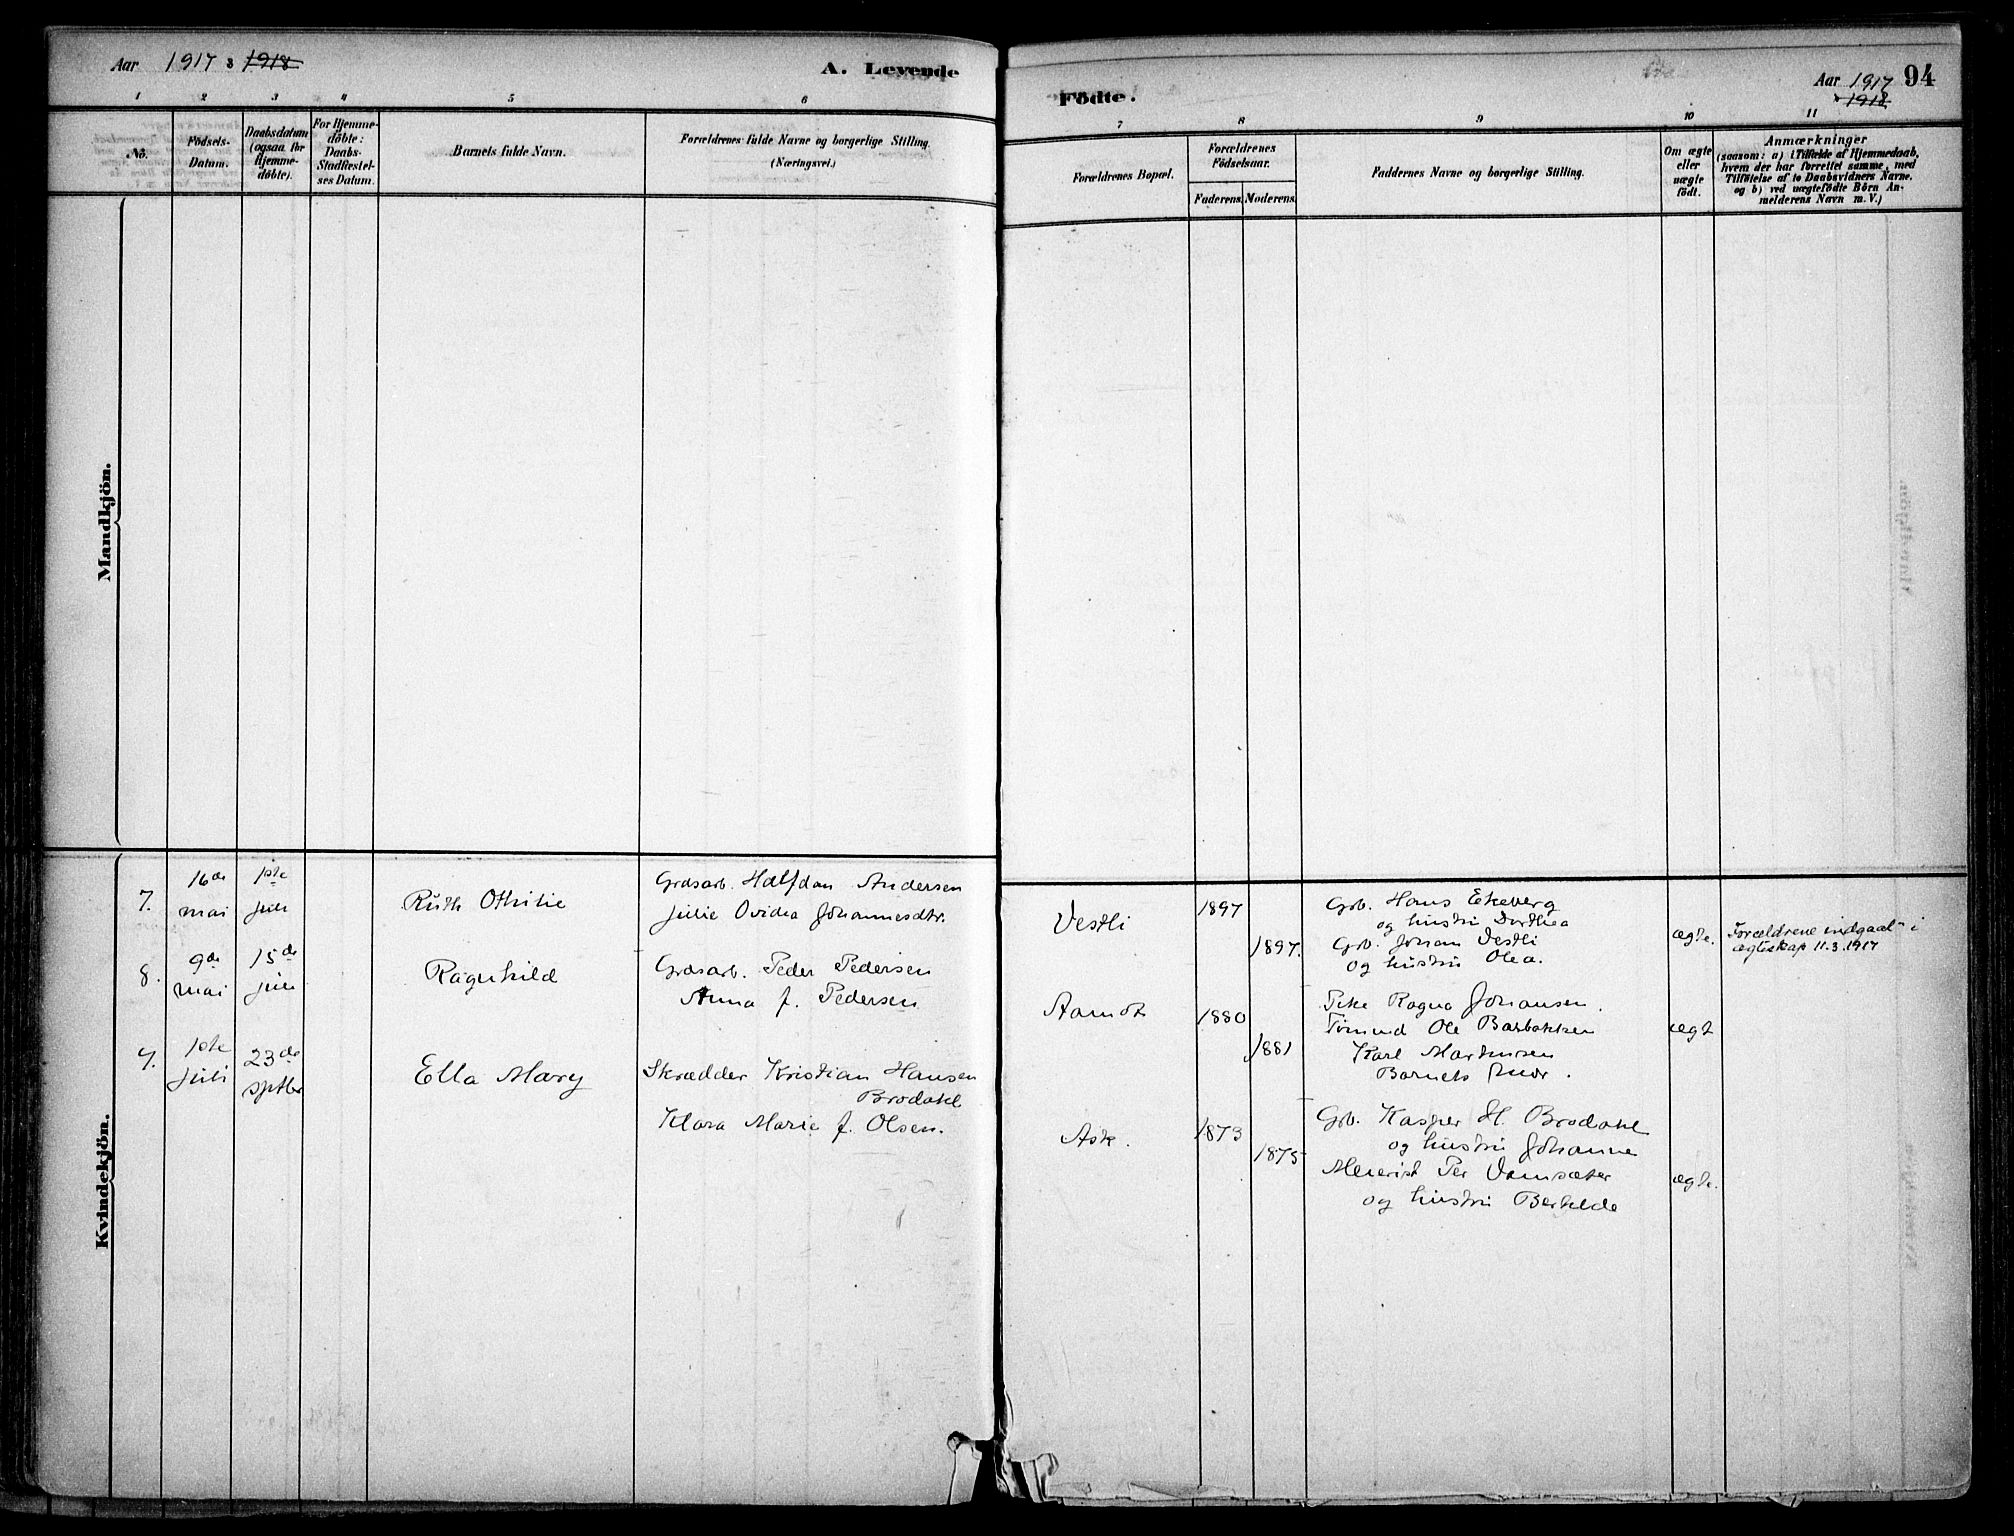 Aar 1917 & 1918
A. Levende
Födte.
Aar 1917 94
& 1918
1 2 3 4 5 6 7 8 9 10 11
No.
Födsels-
Datum.
Daabsdatum
(ogsaa for
Hjemme-
döbte).
For Hjemme-
döbte:
Daabs-
Stadfæstel-
ses Datum.
Barnets fulde Navn.
Forældrenes fulde Navne og borgerlige Stilling.
(Næringsvei.)
Forældrenes Bopæl.
Forældrenes
Födselsaar.
Faderens. Moderens.
Faddernes Navne og borgerlige Stilling.
Om ægte
eller
uægte
födt.
Anmærkninger
(saasom: a) i Tilfælde af Hjemmedaab,
hvem der har forrettet samme, med
Tilföielse af to Daabsvidners Navne.
og b) ved uægtefödte Börn An-
melderens Navn m. V.)
Mandkjön.
Kvindekjön.
7.
16de
mai
1ste
juli
Ruth Othilie
Grdsarb. Halfdan Andersen
Julie Ovidea Johannesdtr.
Vestli
1897
1897.
Grb. Hans Ekeberg
og hustru Dorthea
Grb. Johan Vestli
og hustru Olea.
ægte.
Forældrene indgaat i
ægteskap 11.3.1917
8.
9de
mai
15de
juli
Ragnhild
Grdsarb. Peder Pedersen
Anna f. Pedersen
1880
1881
Pike Ragna Johansen.
Ole Barbakken
Karl Martinsen
Barnets mor.
ægt
9.
1ste
juli
23de
septbr
Ella Mary
Skrædder Kristian Hansen
Brodahl
Klara Marie f. Olsen.
Ask.
1873
1875
Grb. Kasper H. Brodahl
og hustru Johanne
Meierist Per
og hustru
ægte.